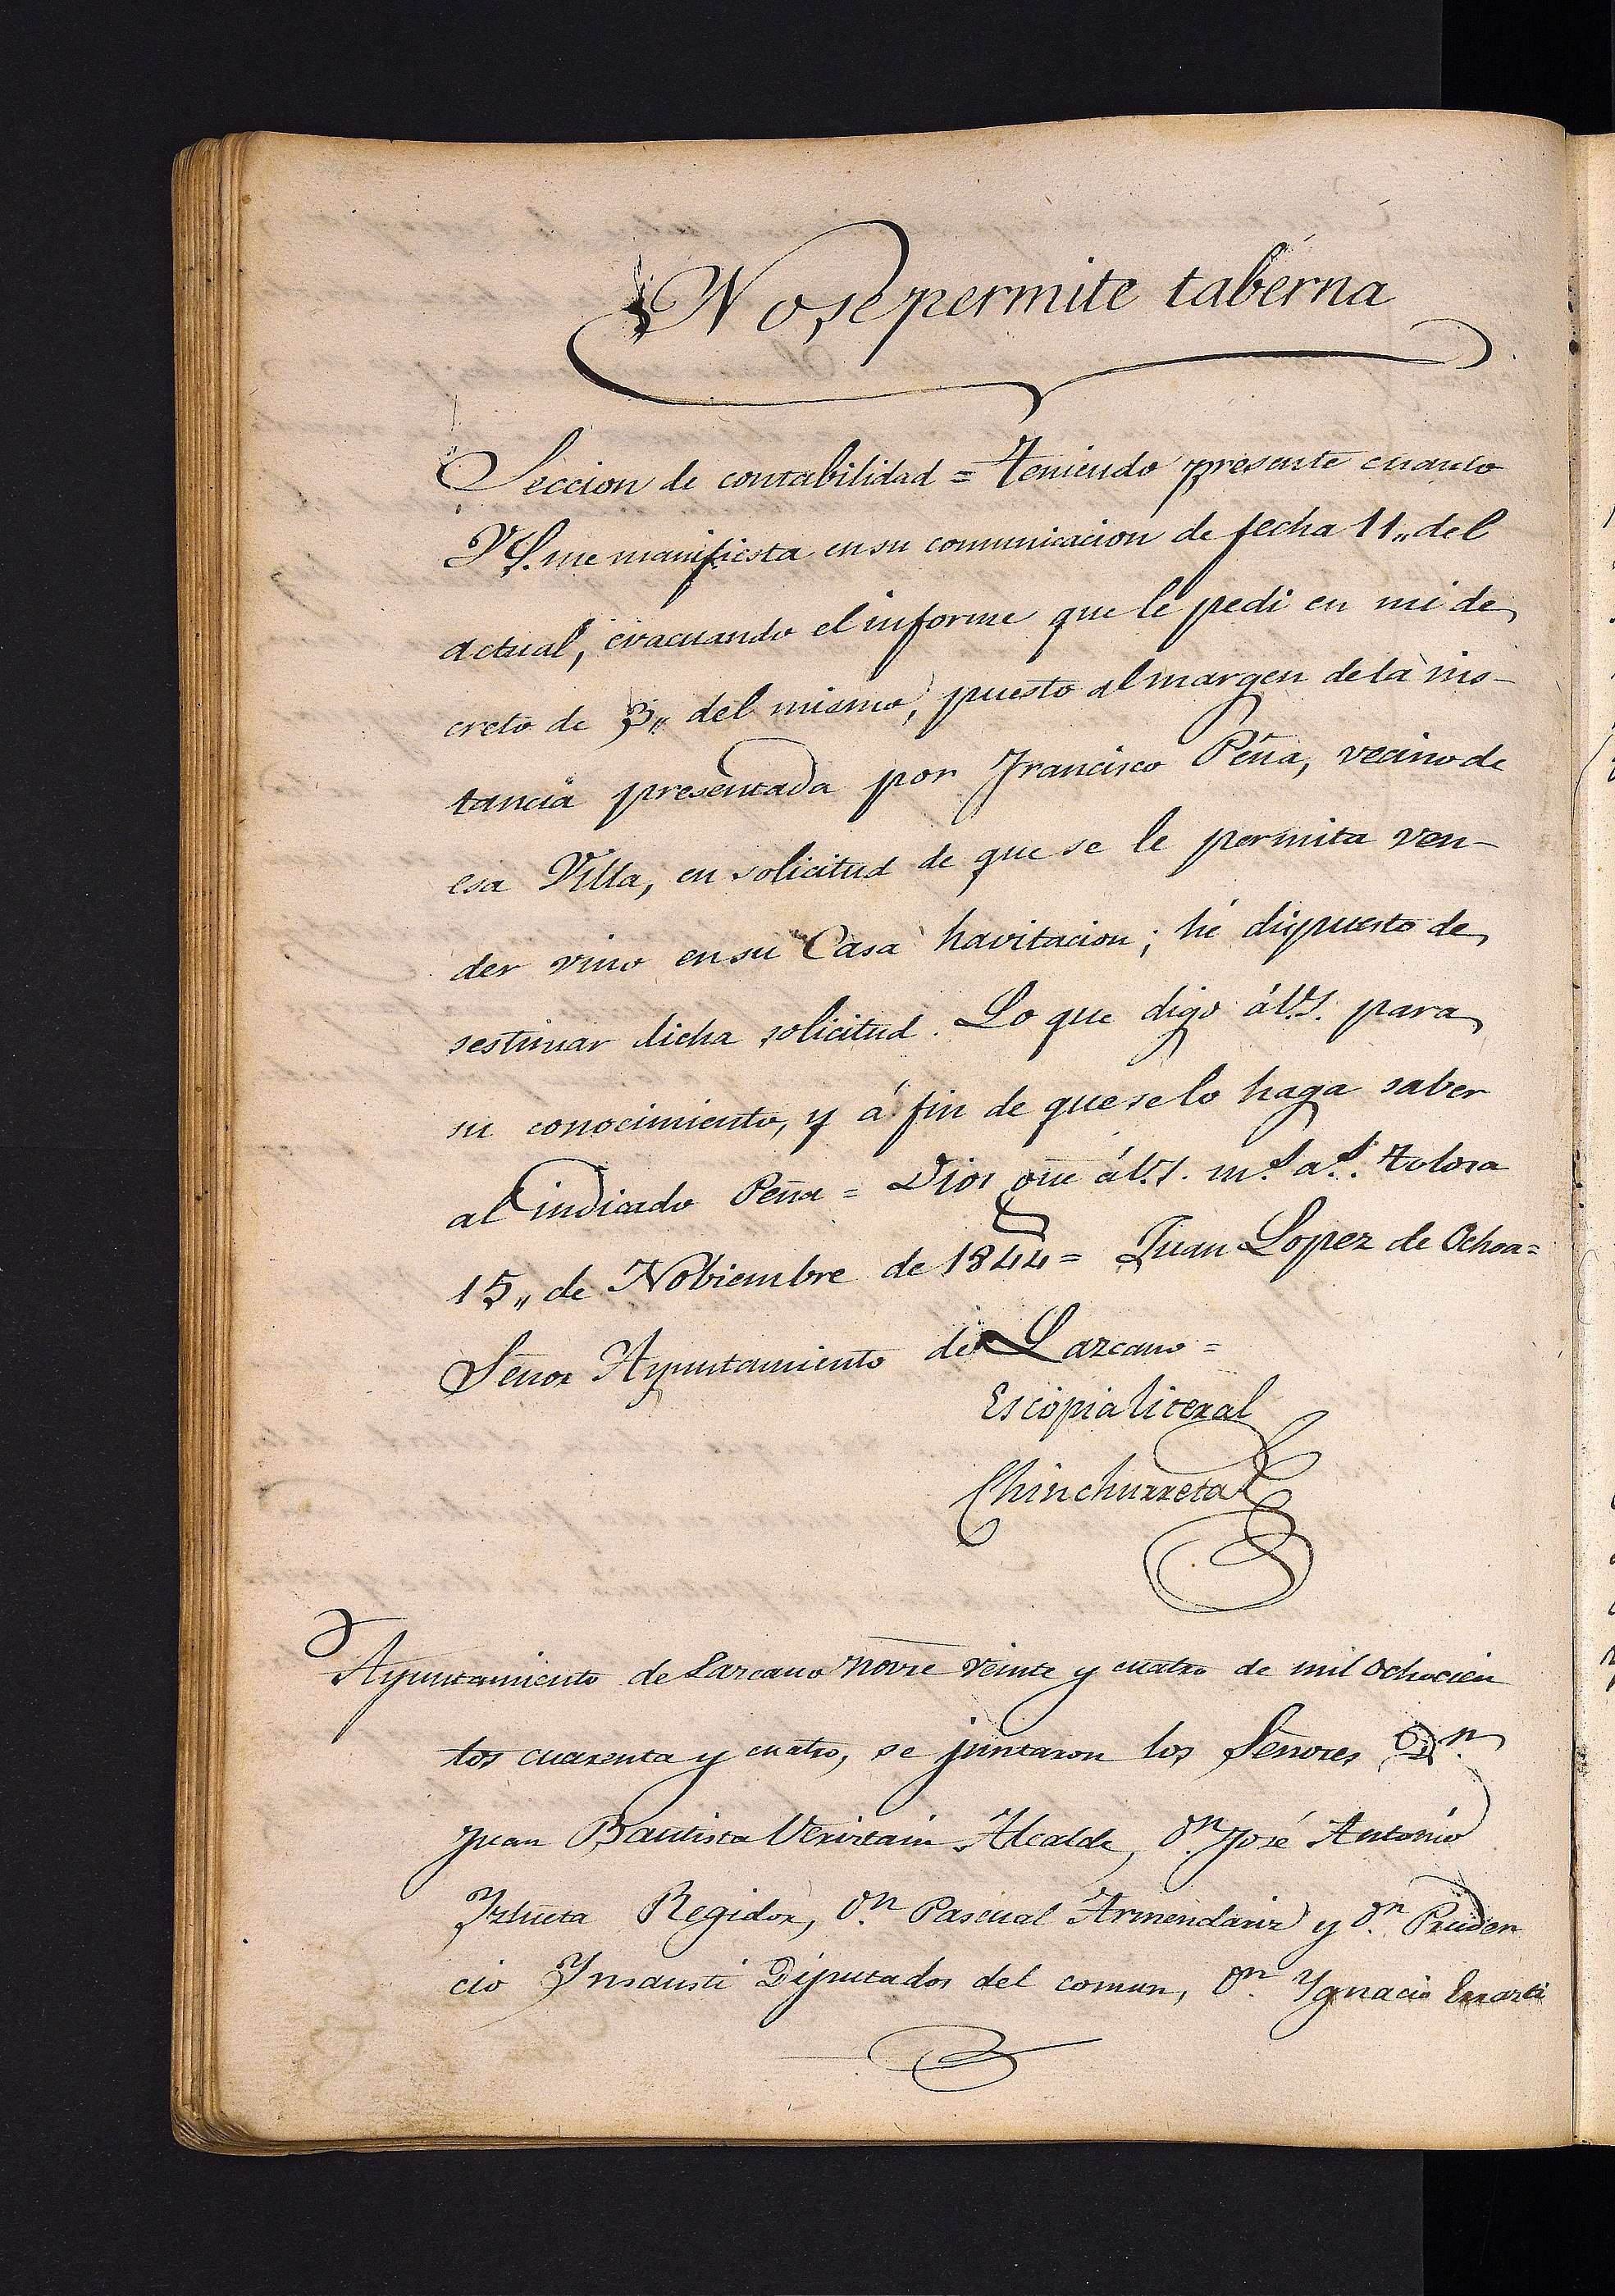 No se permite taberna
Seccion de contabilidad = Teniendo presente cuanto
VS. me manifiesta en su comunicacion de fecha 11,, del
actual, evacuando el informe que le pedi en mi de
creto de 3,, del mismo, puesto al margen de la ins-
tancia presentada por Francisco Peña, vecino de
esa Villa, en solicitud de que se le permita ven-
der vino en su Casa havitacion; hé dispuesto de
sestimar dicha solicitud. Lo que digo á V.S. para
su conocimiento, y á fin de que se lo haga saber
al indicado Peña = Dios gue á V.S. m.s a.s. Tolosa
15,, de Nobiembre de 1844 = Juan Lopez de Ochoa =
Señor Ayuntamiento de Lazcano =
Es copia literal
Chinchurreta
Ayuntamiento de Lazcano Novre veinte y cuatro de mil ochocien
tos cuarenta y cuatro, se juntaron los Señores Dn.
Juan Bautista Alcalde, Dn. José Antonio
Yztueta Regidor, Dn. Pascual Armendariz y Dn. Pruden
cio Ynsausti Diputados del comun, Dn. Ygnacio